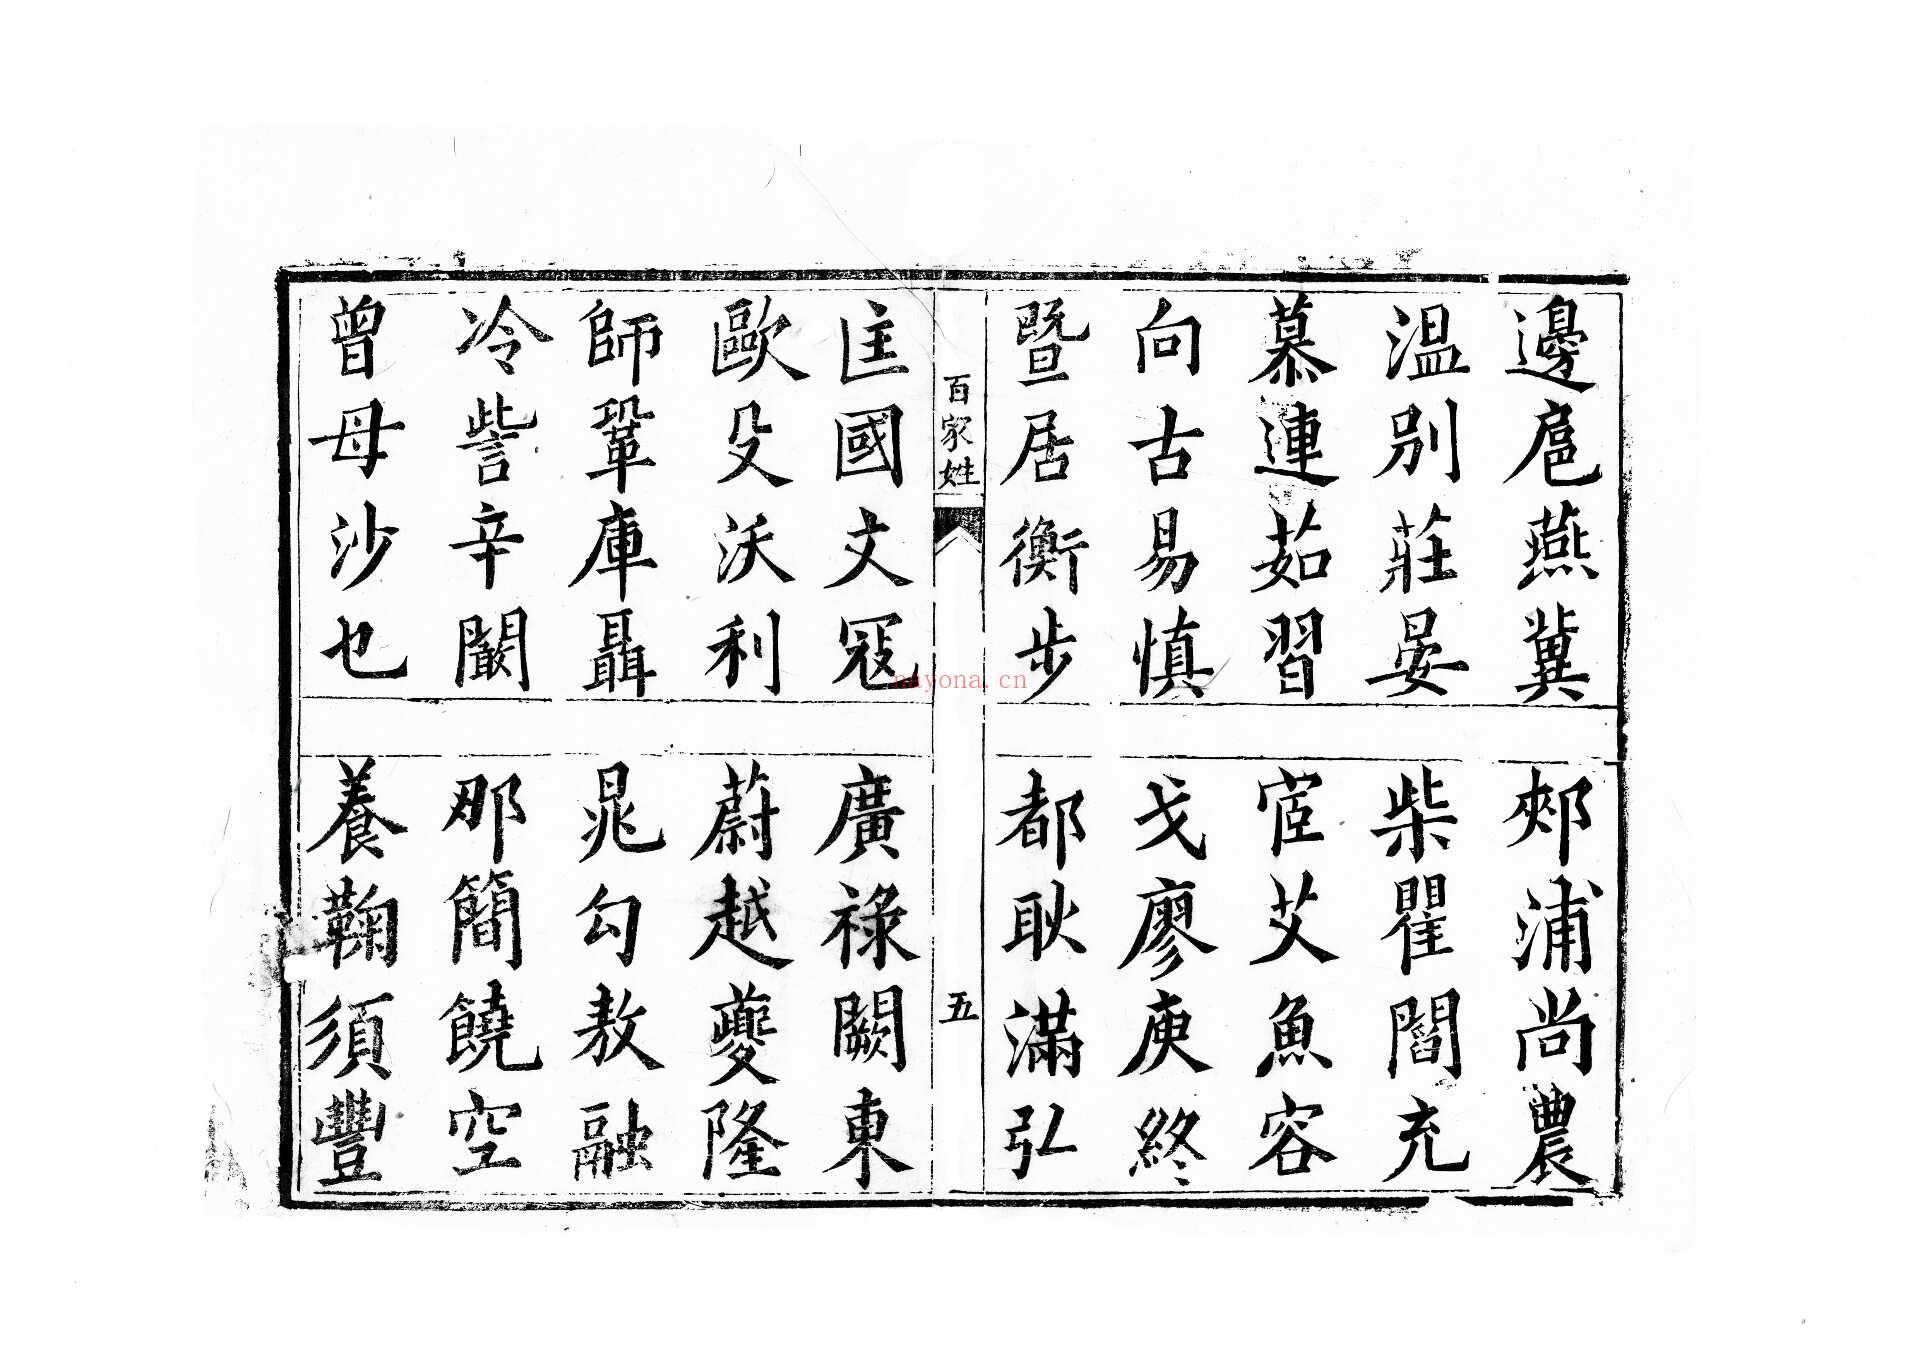 邊扈燕冀
郟浦尚農
温别莊晏
柴瞿閻充
慕連茹習
宦艾魚容
向古易慎
戈廖庾終
暨居衡步
都耿滿弘
百家姓
五
匡國文寇
廣祿闕東
歐殳沃利
蔚越夔隆
師鞏庫聶
晁勾敖融
冷訾辛闞
那簡饒空
曾母沙乜
養鞠須豐
nayona.cn